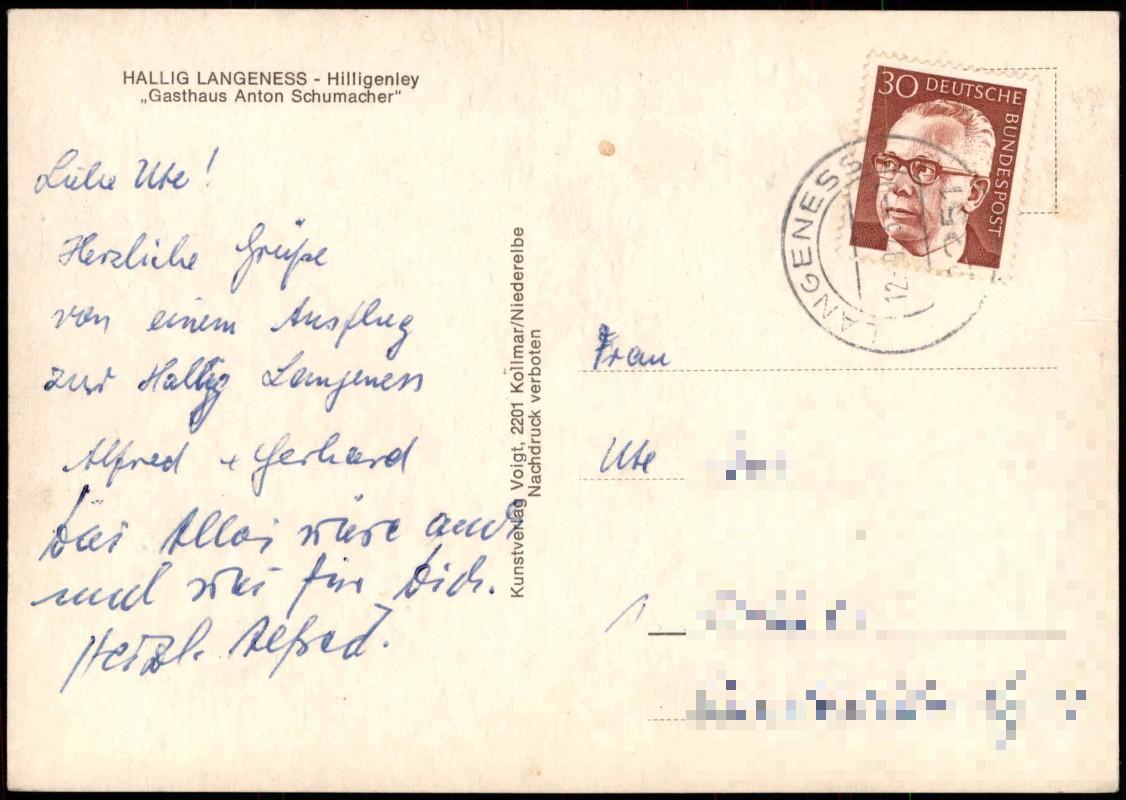 HALLIG LANGENESS - Hilligenley
„Gasthaus Anton Schumacher“
Liebe Ute!
Herzliche Grüße
von einem Ausflug
zur Hallig Langeness
Alfred + Gerhard
Das Alles wäre auch
mal was für Dich.
Herzl. Alfred.
Kunstverlag Voigt, 2201 Kollmar/Niederelbe
Nachdruck verboten
30 DEUTSCHE
BUNDESPOST
LANGENESS
Frau
Ute